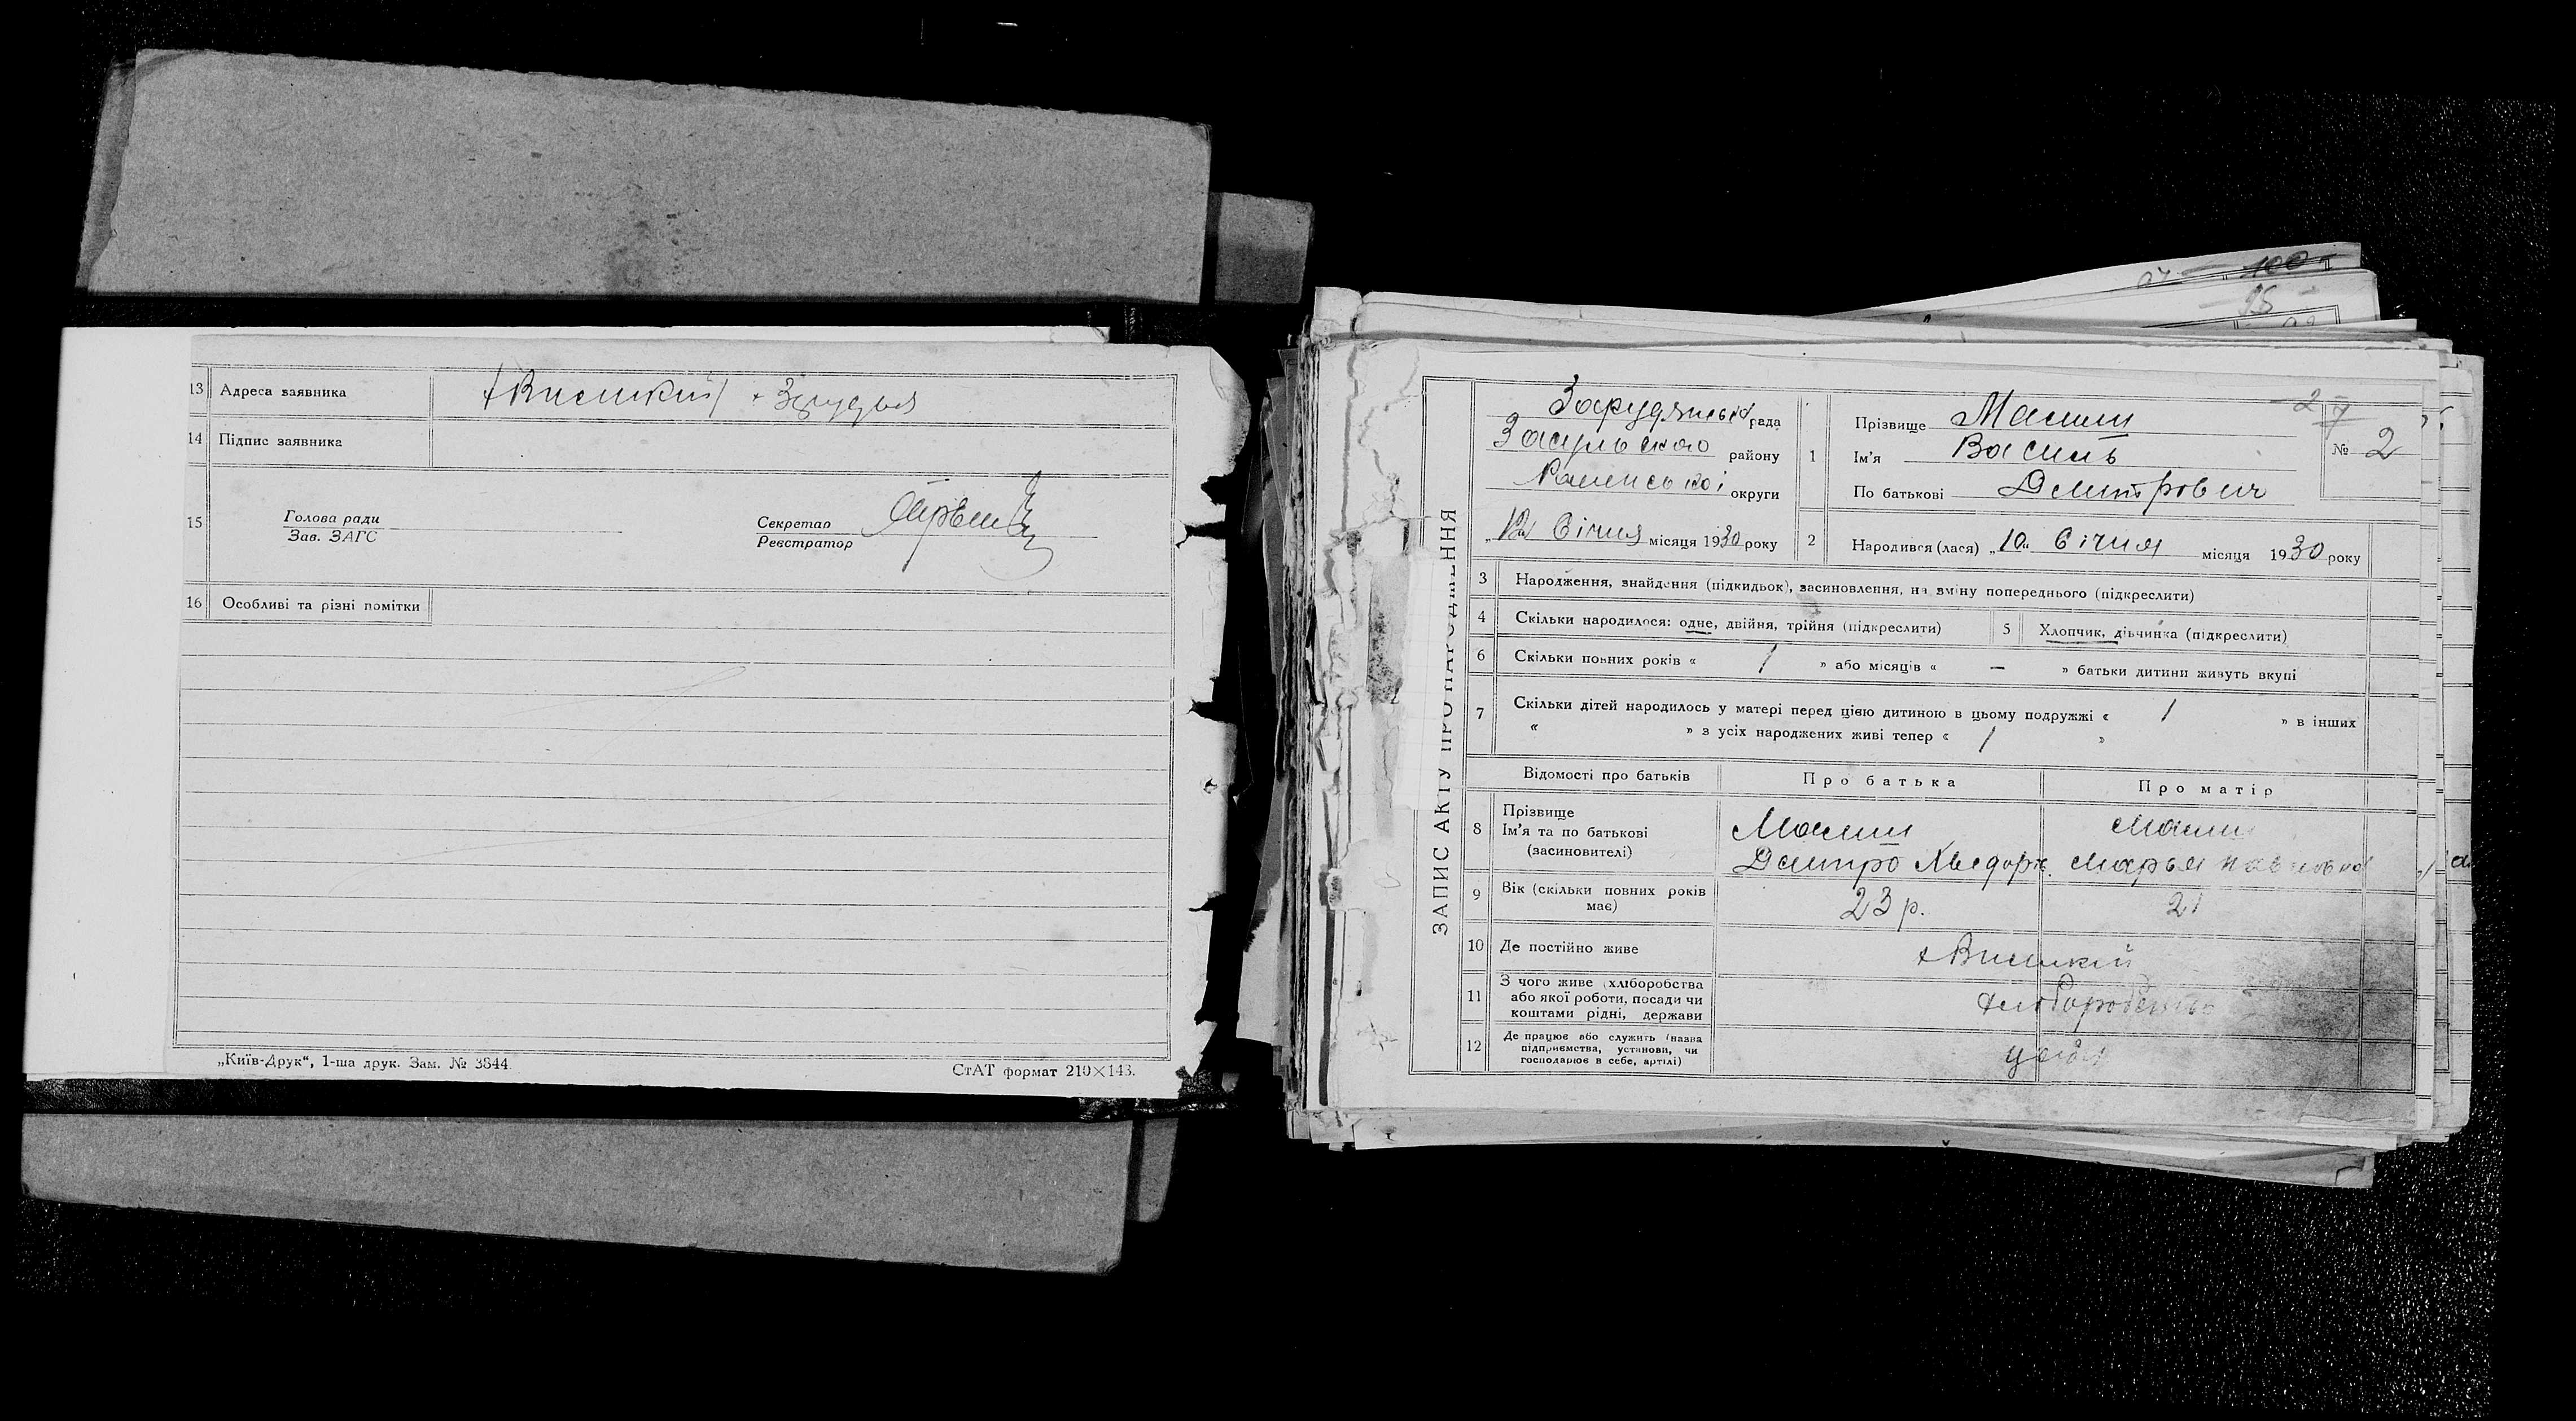 13 Адреса заявника
14 Підпис заявника
15 Голова ради
Зав. ЗАГС
Секретар
Реєстратор
16 Особливі та різні помітки
„Київ-Друк“, 1-ша друк. Зам. № 3844
СтАТ формат 210×143.
100
95
ЗАПИС АКТУ ПРО НАРОДЖЕННЯ
Зарудянська рада
Засульского району
Роменської округи
„12“ Січня місяця 1930 року
1 Прізвище Малий
Ім'я Василь
По батькові Дмитрович
№ 2
2 Народився (лася) „10“ Січня місяця 1930 року
3 Народження, знайдення (підкидьок), засиновлення, на зміну попереднього (підкреслити)
4 Скільки народилося: одне, двійня, трійня (підкреслити)
5 Хлопчик, дівчинка (підкреслити)
6 Скільки повних років « 1 » або місяців « — » батьки дитини живуть вкупі
7 Скільки дітей народилось у матері перед цією дитиною в цьому подружжі « 1 » в інших
« » з усіх народжених живі тепер « 1 »
Відомості про батьків
Про батька
Про матір
8 Прізвище
Ім'я та по батькові
(засиновителі)
Малий
Дмитро
Малий
Марья Павловна
9 Вік (скільки повних років
має)
23 р.
21
10 Де постійно живе
11 З чого живе (хліборобства
або якої роботи, посади чи
коштами рідні, держави
12 Де працює або служить (назва
підприємства, установи, чи
господарює в себе, артілі)